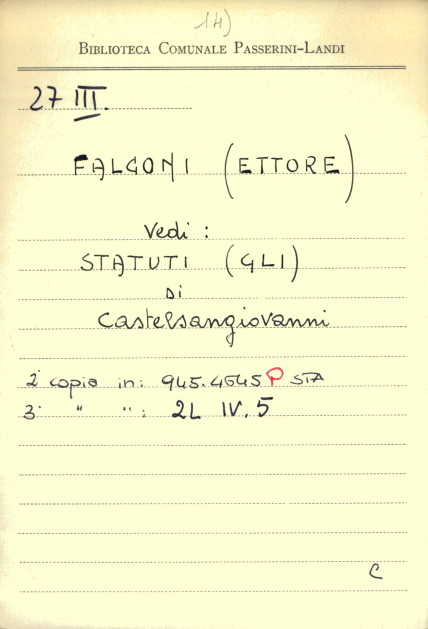 14)
BIBLIOTECA COMUNALE PASSERINI-LANDI
27 III.
FALCONI (ETTORE)
Vedi :
STATUTI (GLI)
di
Castelsangiovanni
2ª copia in: 945.4645 P STA
3ª " " : 2L IV. 5
C